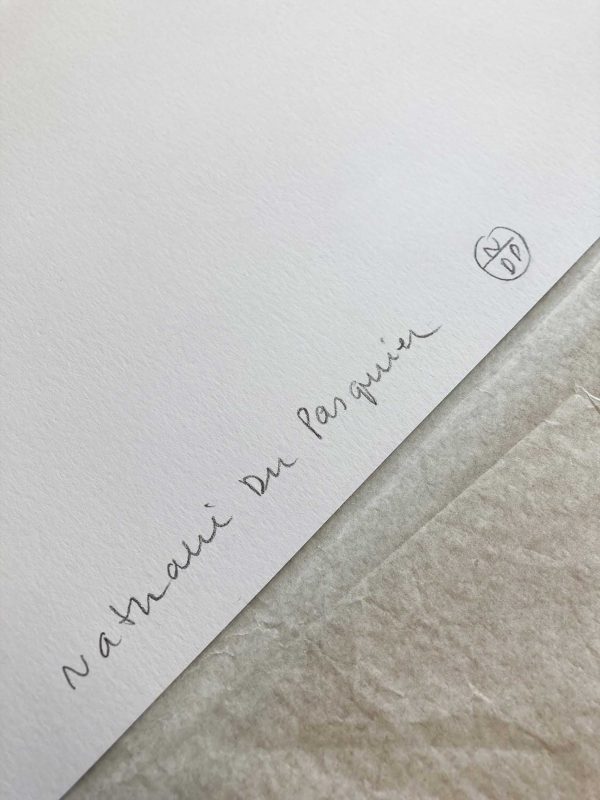 N
DP
Nathalie Du Pasquier